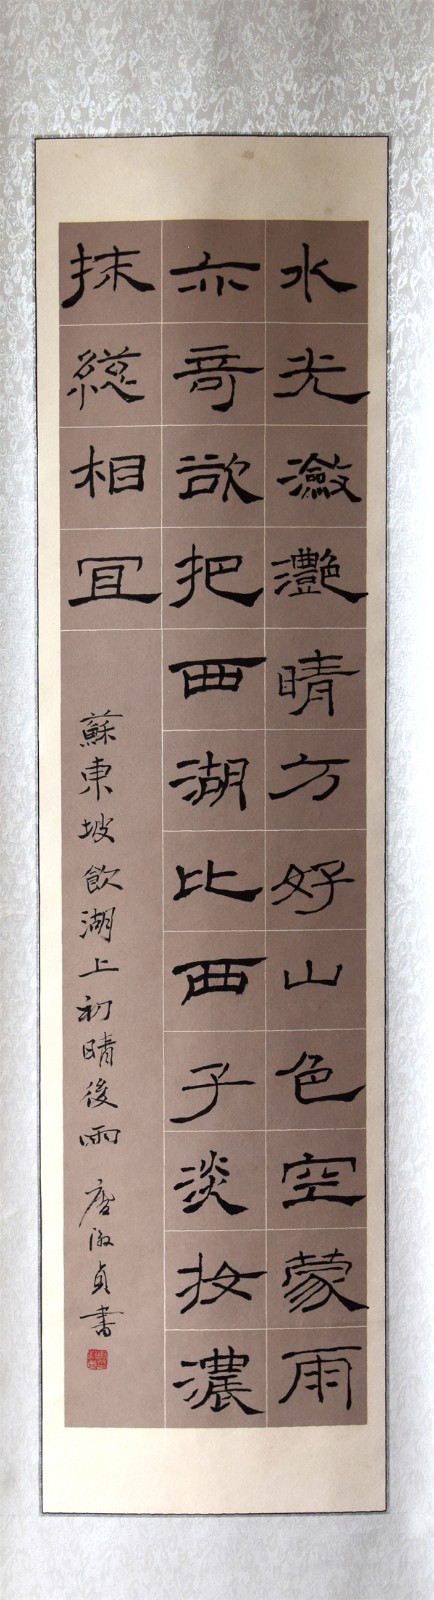 水光瀲灩晴方好山色空蒙雨
亦奇欲把西湖比西子淡妝濃
抹總相宜
蘇東坡飲湖上初晴後雨 唐淑貞書